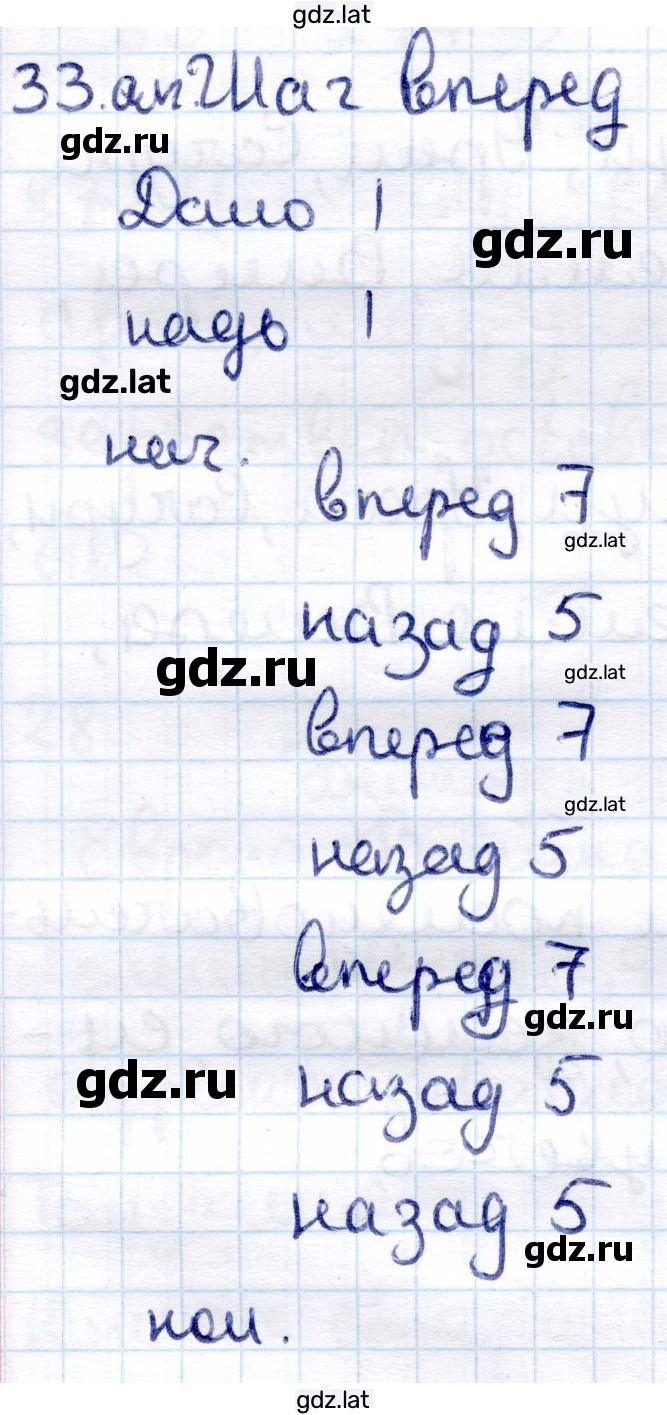 gdz.lat
33. алг. Шаг вперед
gdz.ru
Дано |
gdz.ru
надо |
gdz.lat
нач.
вперед 7
gdz.lat
назад 5
gdz.ru
gdz.lat
вперед 7
gdz.lat
назад 5
вперед 7
gdz.ru
назад 5
gdz.ru
назад 5
gdz.ru
кон.
gdz.lat